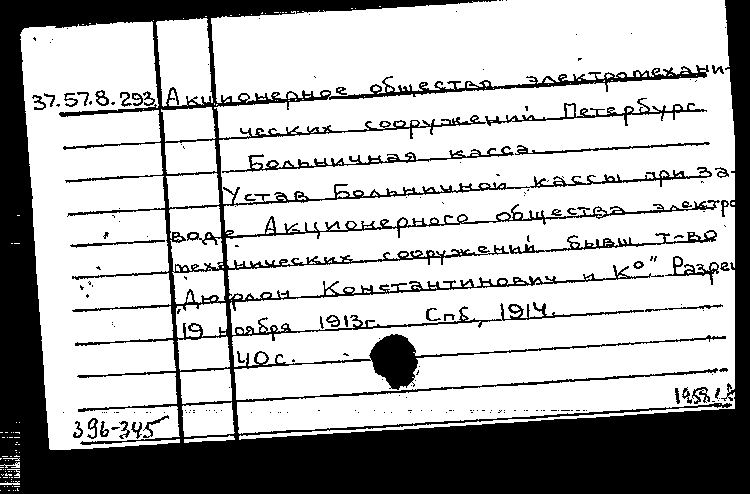 37.57.8.293 Акционерное общество электромехани-
ческих сооружений. Петербург.
Больничная касса.
Устав Больничной кассы при за-
воде Акционерного общества электро
механических сооружений бывш. т-во
„Дюфлон Константинович и К°" Разреш
19 ноября 1913г. Спб, 1914.
40 с.
396-345